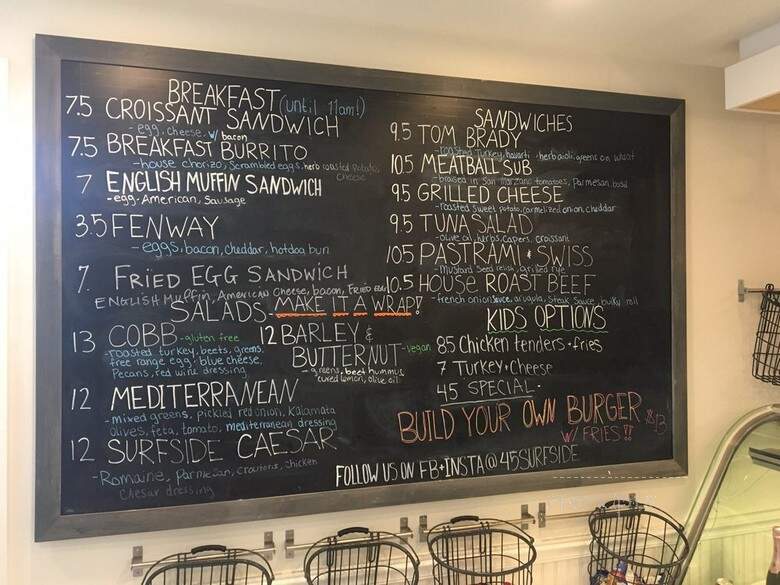 BREAKFAST (until 11am!)
7.5 CROISSANT SANDWICH
-egg, cheese, w/ bacon
7.5 BREAKFAST BURRITO
-house chorizo, Scrambled eggs, herb roasted potato, cheese
7 ENGLISH MUFFIN SANDWICH
-egg, American, Sausage
3.5 FENWAY
-eggs, bacon, cheddar, hotdog bun
7. FRIED EGG SANDWICH
ENGLISH Muffin, American Cheese, bacon, Fried egg
SALADS-MAKE IT A WRAP!
13 COBB -gluten free
-roasted turkey, beets, greens,
free range egg, blue cheese,
Pecans, red wine dressing
12 BARLEY &
BUTTERNUT -vegan
-greens, beet hummus,
cured lemon, olive oil
12 MEDITERRANEAN
-mixed greens, pickled red onion, Kalamata
olives, feta, tomato, mediterranean dressing
12 SURFSIDE CAESAR
-Romaine, Parmesan, croutons, chicken
Caesar dressing
SANDWICHES
9.5 TOM BRADY
-roasted Turkey, havarti, herb aioli, greens on wheat
10.5 MEATBALL SUB
-braised in San Marzano tomatoes, Parmesan, basil
9.5 GRILLED CHEESE
-roasted sweet potato, carmelized onion, cheddar
9.5 TUNA SALAD
-olive oil, herbs, capers, croissant
10.5 PASTRAMI & SWISS
-Mustard Seed relish, grilled rye
10.5 HOUSE ROAST BEEF
-french onion sauce, arugula, steak sauce, bulky roll
KIDS OPTIONS
8.5 Chicken tenders + fries
7 Turkey + Cheese
45 SPECIAL-
BUILD YOUR OWN BURGER $13
W/ FRIES!!
FOLLOW US ON FB+INSTA@45SURFSIDE